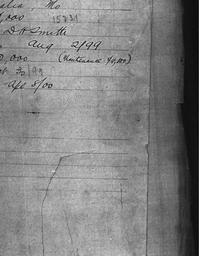 alia, Mo
,000 15731
D H Smith
Aug 2/99
0,000 (Maintenance $9,000)
Apl 5/00